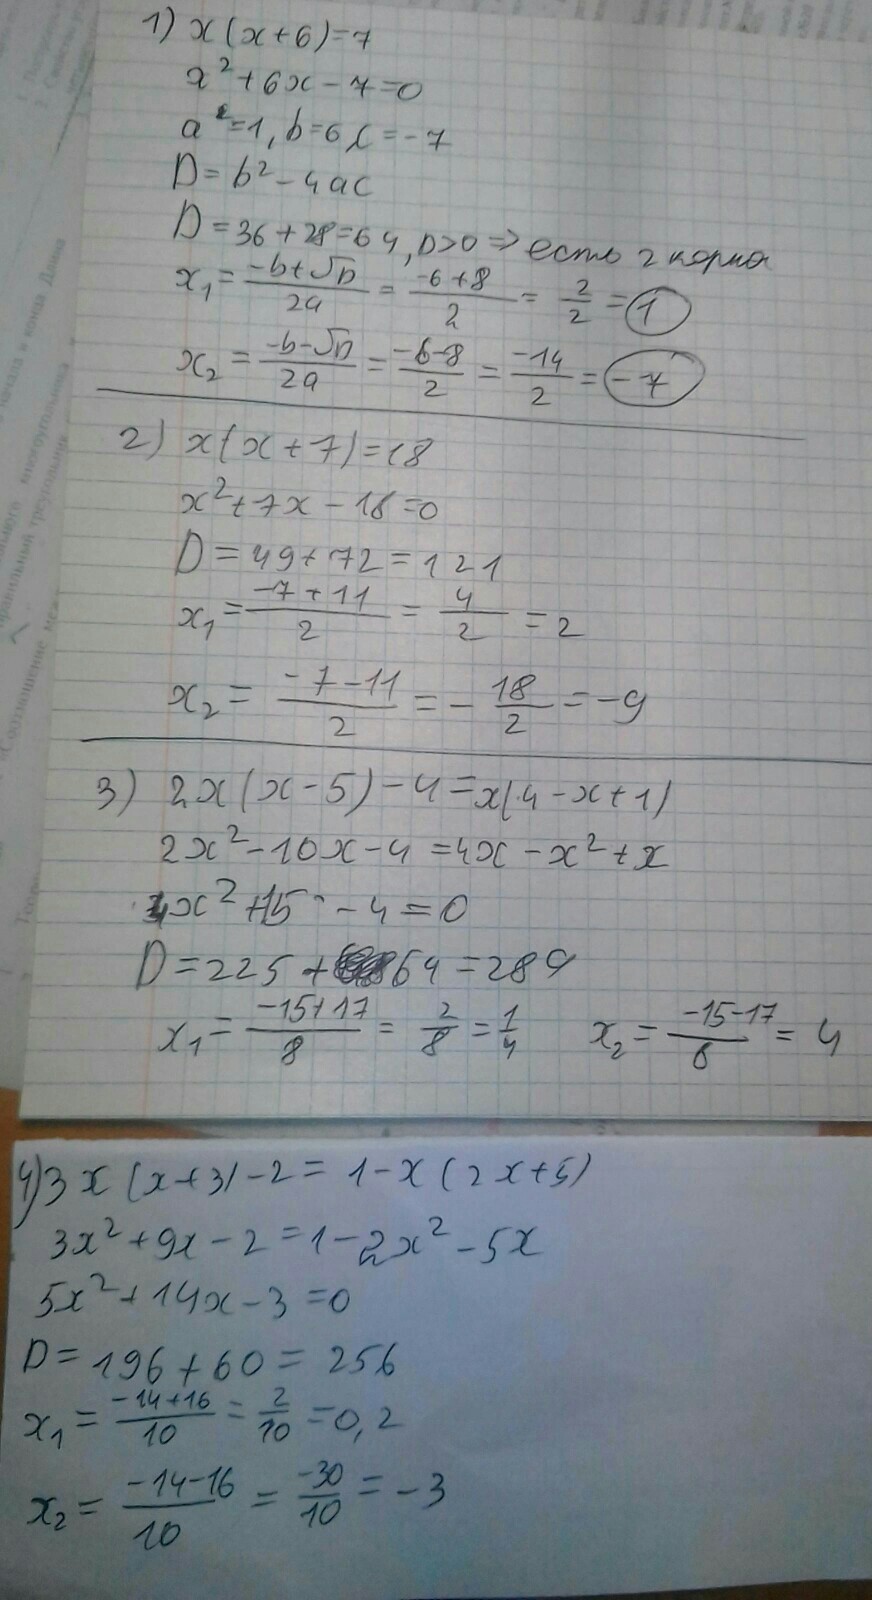 1) x(x+6)=7
x²+6x-7=0
a=1, b=6, c=-7
D=b²-4ac
D=36+28=64, D>0 => есть 2 корня
x₁=(-b+√D)/2a=(-6+8)/2=2/2=1
x₂=(-b-√D)/2a=(-6-8)/2=-14/2=-7
2) x(x+7)=18
x²+7x-18=0
D=49+72=121
x₁=(-7+11)/2=4/2=2
x₂=(-7-11)/2=-18/2=-9
3) 2x(x-5)-4=x(4-x+1)
2x²-10x-4=4x-x²+x
4x²+15-4=0
D=225+64=289
x₁=(-15+17)/8=2/8=1/4 x₂=(-15-17)/8=4
4) 3x(x+3)-2=1-x(2x+5)
3x²+9x-2=1-2x²-5x
5x²+14x-3=0
D=196+60=256
x₁=(-14+16)/10=2/10=0,2
x₂=(-14-16)/10=-30/10=-3